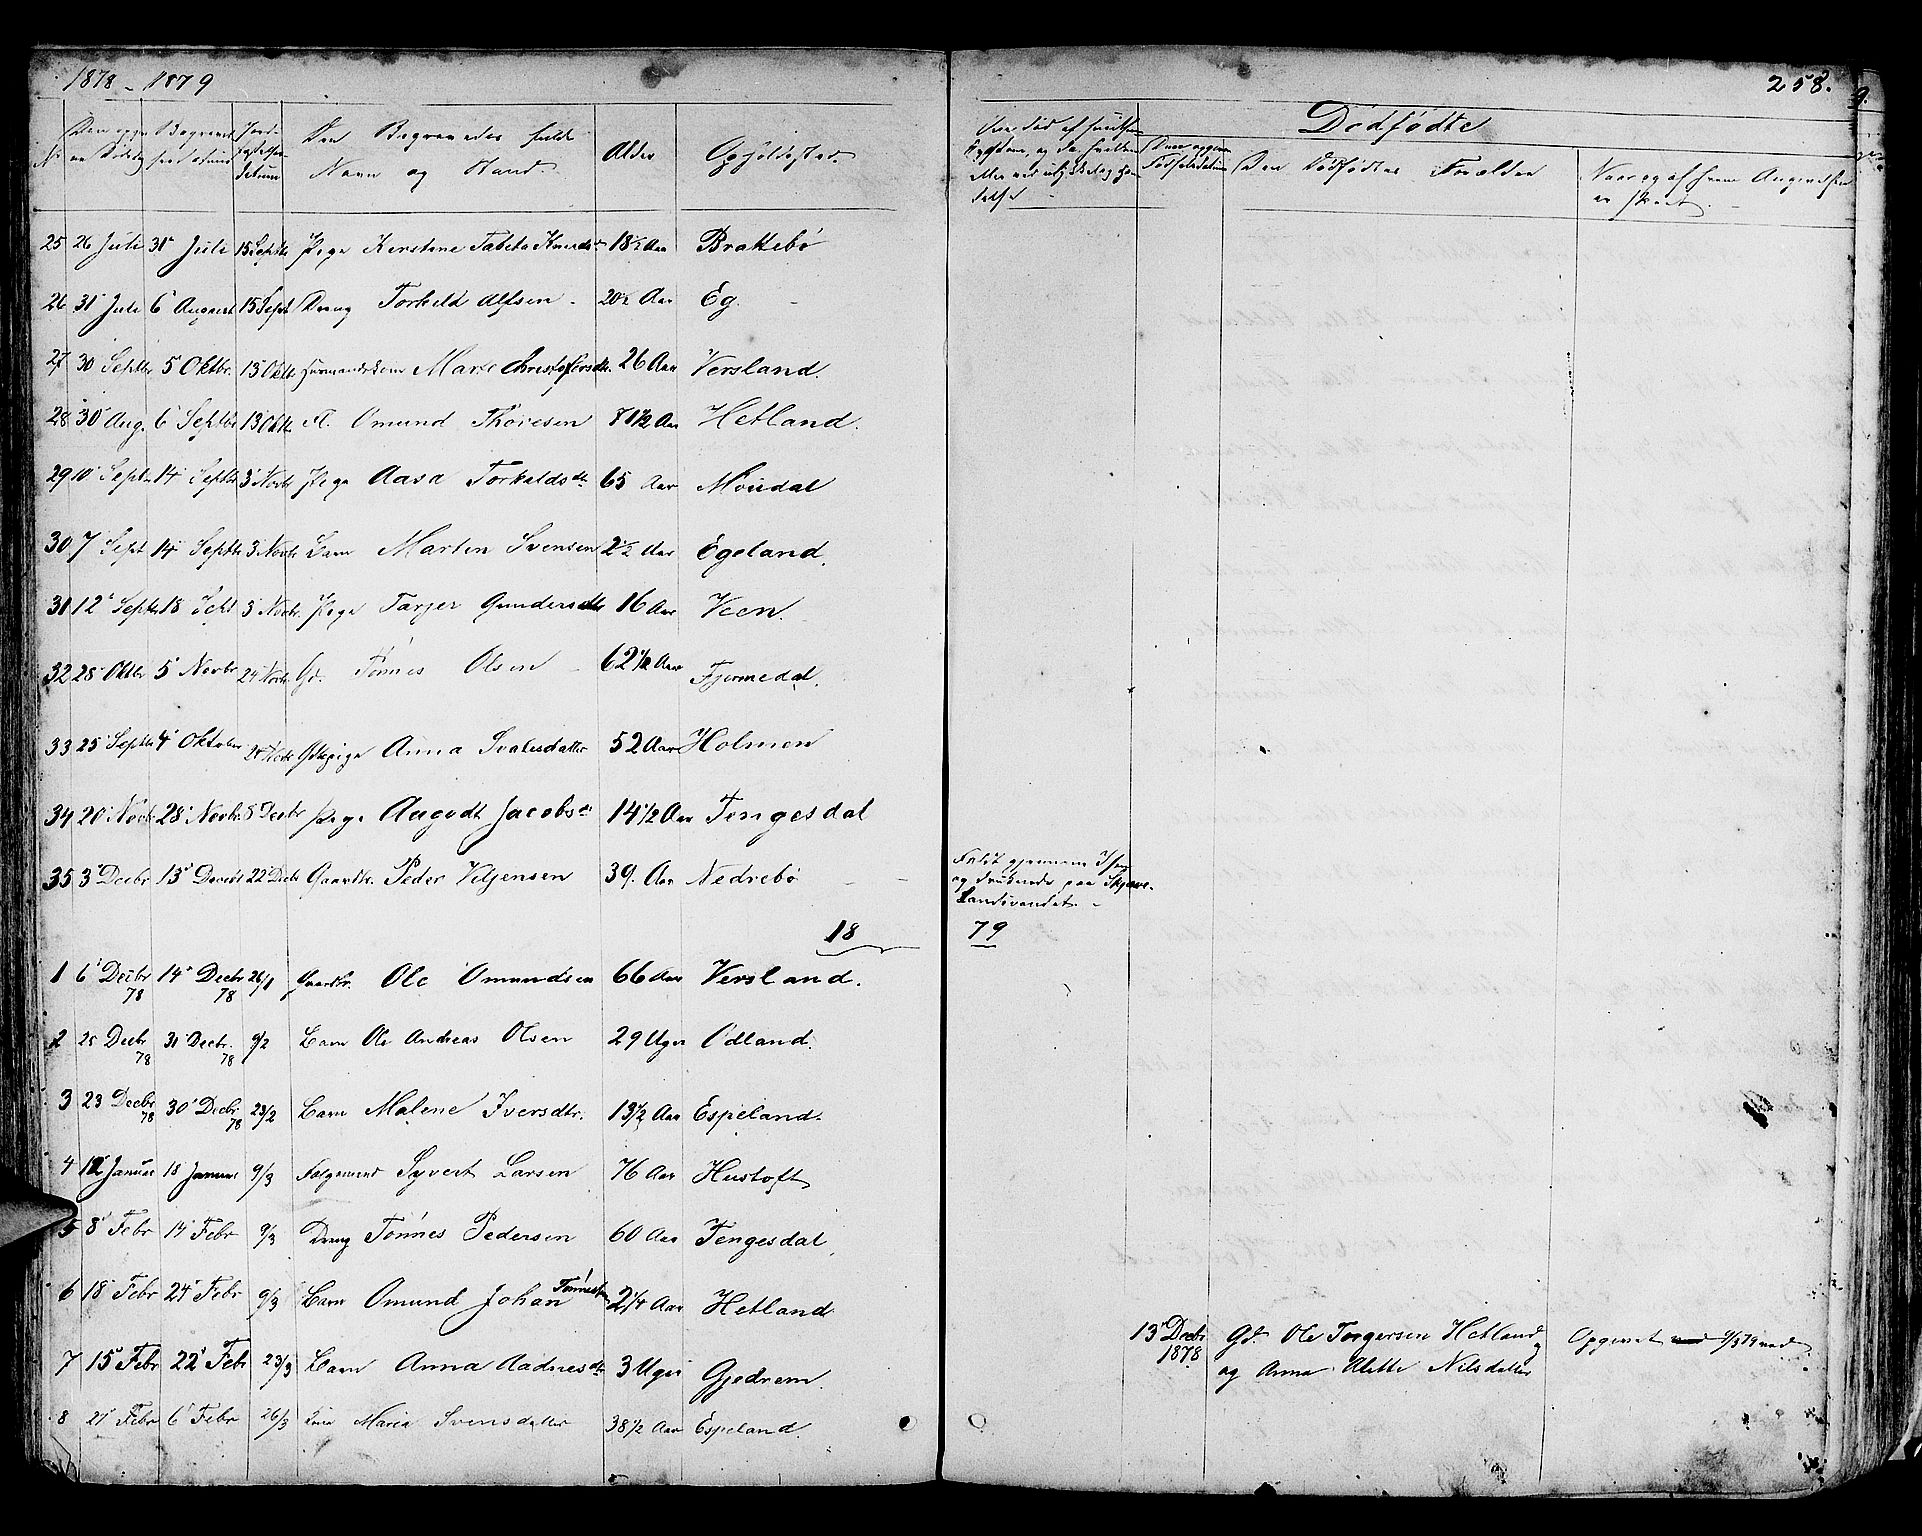 1878 - 1879
258.
Dödfödte
No Den opgivne Dödsdag Begravelsesdatum Jordfæstelsesdatum Den Begravedes fulde Navn og Stand. Alder Opholdssted.
Den Dödfödtes Forældre Naar og af hvem Angivelsen er skeet.
25 26 Juli 31 Juli 15 Septbr Pige Kerstene Tabita 18½ Aar Brattebö
26 31 Juli 6 August 15 Sept Dreng Torkild Alfsen - 20½ Aar Eg. -
27 30 Septbr 5 Oktbr. 13 Oktb. Marte Christoffersdtr. 26 Aar Versland.
28 30 Aug. 6 Septbr 13 Oktb. Fl. Omund Thoresen 81½ Aar Hetland.
29 10 Septbr 14 Septbr 3 Novbr Pige Aasa Torkeldsdtr 65 Aar Moudal
30 7 Sept 14 Septbr 3 Novbr Barn Marten Svensen 2½ Aar Egeland.
31 12 Septbr 18 Sept 3 Novbr. Pige Tarjer Gundersdtr 16 Aar Veen.
32 28 Oktbr 5 Novbr 24 Novbr Gd. Tönnes Olsen - 62½ Aar Fjermedal.
33 25 Septbr 4 Oktober 24 Novbr Pige Anna 52 Aar Holmen
34 20 Novbr 28 Novbr. 8 Decbr Pige Jacobsdtr 14½ Aar Tengesdal
35 3 Decbr 13 Decbr 22 Decbr Gaardbr. Peder Veljensen 39. Aar Nedrebö - -
Faldt gjennem Isen
og druknede paa Skjæve-
landsvandet. -
18 79
1 6 Decbr 78 14 Decbr 78 26/1 Gaardbr. Ole Omundsen 66 Aar Versland.
2 25 Decbr 78 31 Decbr. 78 9/2 Barn Ole Andreas Olsen 29 Uger Ödland.
3 23 Decbr 78 30 Decbr 78 23/2 Barn Malene Iversdtr. 13½ Aar Espeland.
4 12 Januar 18 Januar 9/3 Syvert Larsen 76 Aar Hustoft
5 8 Febr 14 Febr 9/3 Dreng Tönnes Pedersen 60 Aar Tengesdal.
6 18 Febr 24 Febr 9/3 Barn Omund Johan Tönnesen 2¼ Aar Hetland
13 Decbr 1878 Gd. Ole Torgersen Hetland Opgivet 9/3 79 ved
og Anna Alette Nilsdatter
7 15 Febr 22 Febr 23/3 Barn Anna Aadnesdtr 3 Uger Gjedrem.
8 21 Febr 6 Febr 26/3 Maria Svensdatter 38½ Aar Espeland.